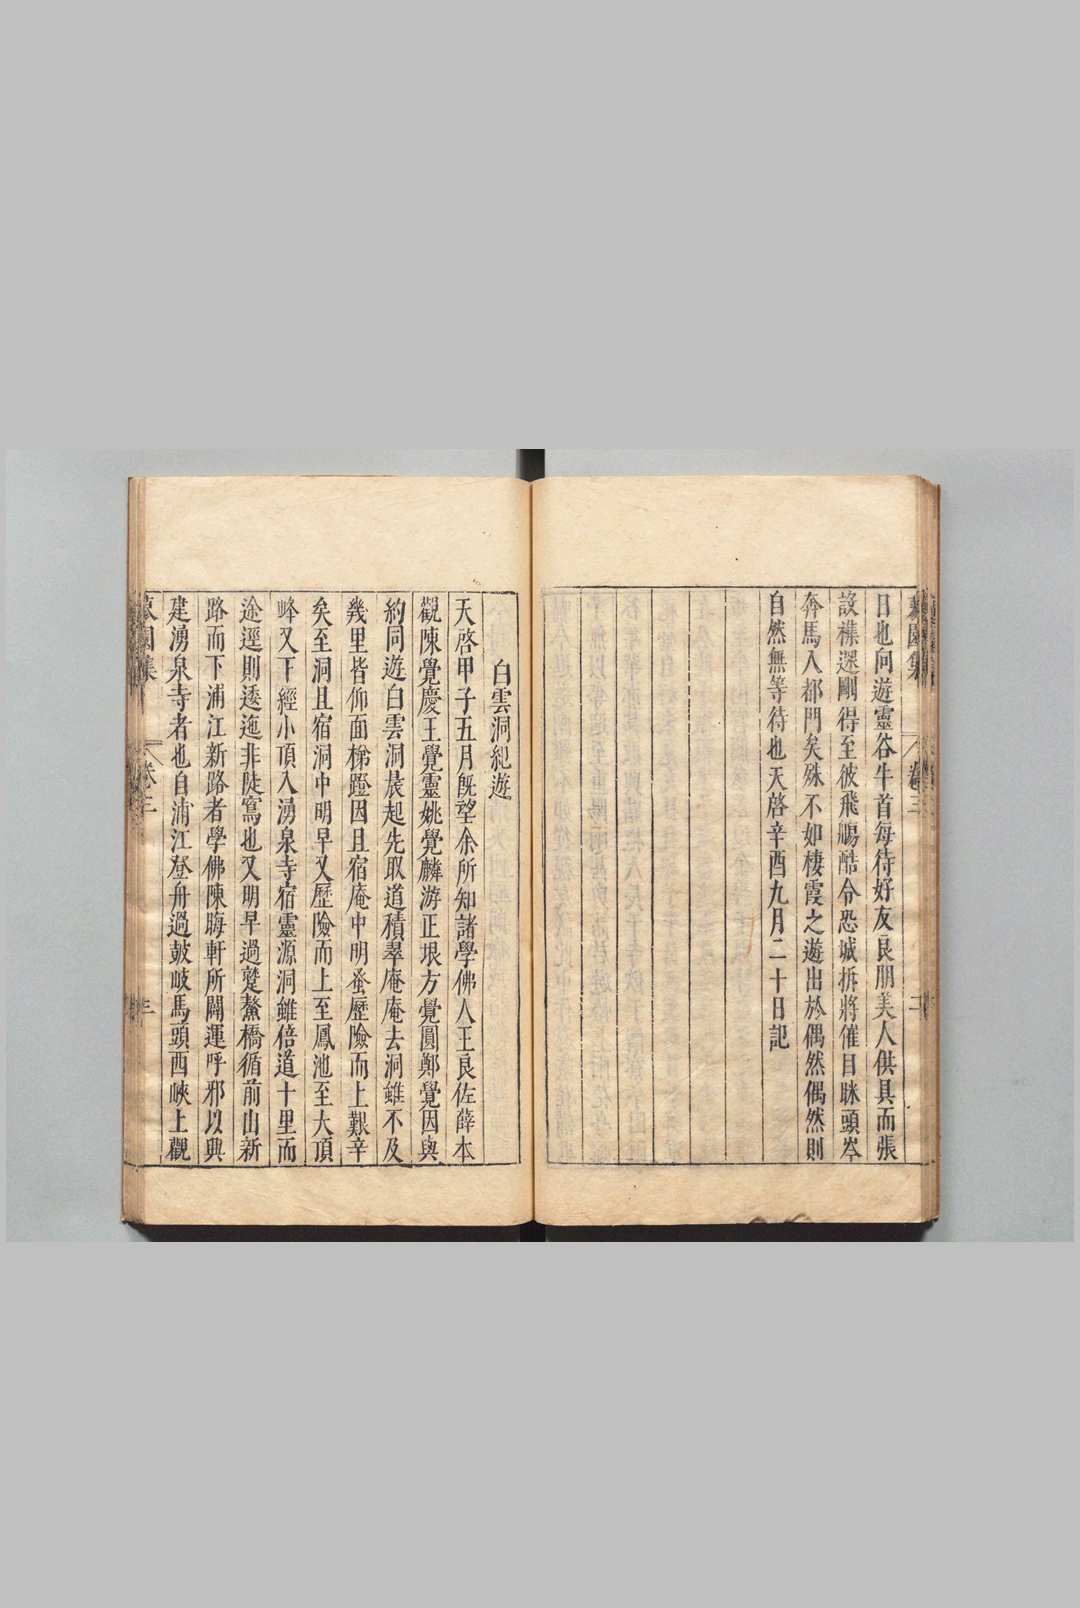 日也向遊靈谷牛首每待好友良朋美人供具而張
設樵選剛得至彼飛鴟酷令恐城拆將催目眯頭岑
奔馬入都門矣殊不如棲霞之遊出於偶然偶然則
自然無等待也天啓辛酉九月二十日記
卷三
二
白雲洞紀遊
天啓甲子五月旣望余所知諸學佛人王良佐薛本
觀陳覺慶王覺靈姚覺麟游正垠方覺圓鄭覺因與
約同遊白雲洞晨起先取道積翠庵庵去洞雖不及
幾里皆仰面梯蹬因且宿庵中明蚤歷險而上艱辛
矣至洞且宿洞中明早又歷險而上至鳳池至大頂
峰又下經小頂入湧泉寺宿靈源洞雖倍道十里而
途逕則逶迤非陡窵也又明早過躄鰲橋循前山新
路而下浦江新路者學佛陳晦軒所闢運呼邪以興
建湧泉寺者也自浦江登舟過鼓岐馬頭西峽上觀
園集
卷三
三